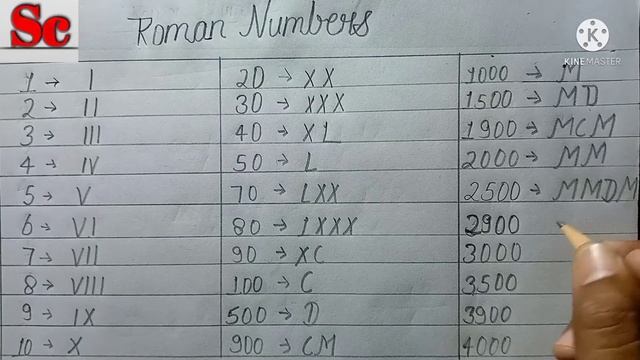 Sc
Roman Numbers
KINEMASTER
1 → I
2 → II
3 → III
4 → IV
5 → V
6 → VI
7 → VII
8 → VIII
9 → IX
10 → X
20 → XX
30 → XXX
40 → XL
50 → L
70 → LXX
80 → LXXX
90 → XC
100 → C
500 → D
900 → CM
1000 → M
1500 → MD
1900 → MCM
2000 → MM
2500 → MMDM
2900
3000
3500
3900
4000